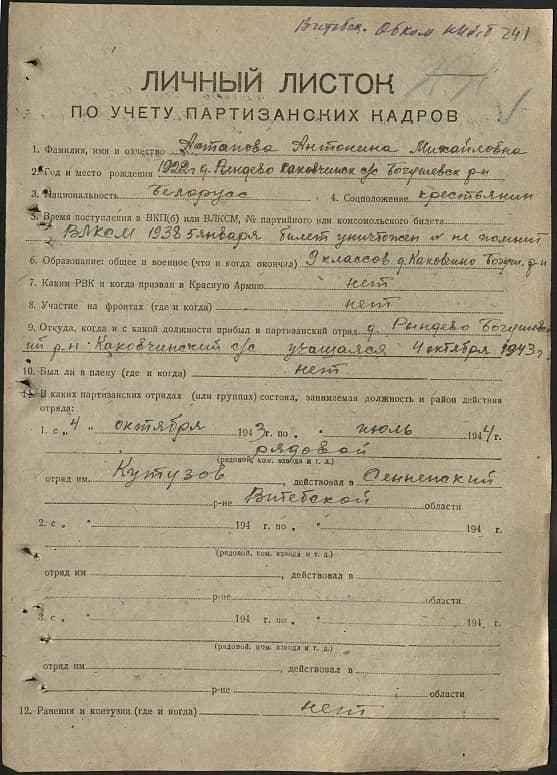 Витебск. Обком 241
ЛИЧНЫЙ ЛИСТОК
ПО УЧЕТУ ПАРТИЗАНСКИХ КАДРОВ
1. Фамилия, имя и отчество Астапова Антонина Михайловна
2. Год и место рождения 1922 г д. Рындево Каковчинск с/с Богушевск р-н
3. Национальность Белорусс 4. Соцположение крестьянин
5. Время поступления в ВКП(б) или ВЛКСМ, № партийного или комсомольского билета
ВЛКОМ 1938 5 января билет уничтожен № не помнит
6. Образование: общее и военное (что и когда окончил) 9 классов д. Каковчино Богуш. р-н
7. Каким РВК и когда призван в Красную Армию нет
8. Участие на фронтах (где и когда) нет
9. Откуда, когда и с какой должности прибыл в партизанский отряд д. Рындево Богушевс
кий р-н Каковчинский с/с учащаяся 4 октября 1943 г.
10. Был ли в плену (где и когда) нет
11. В каких партизанских отрядах (или группах) состоял, занимаемая должность и район действия
отряда:
1. с „4 " октября 1943 г. по „ " июль 1944 г.
рядовой
(рядовой, ком. взвода и т. д.)
отряд им. Кутузов, действовал в Сенненский
р-не Витебской области
2. с „ " 194 г. по „ " 194 г.
(рядовой, ком. взвода и т. д.)
отряд им , действовал в
р-не области
3. с „ " 194 г. по „ " 194 г.
(рядовой, ком. взвода и т. д.)
отряд им. , действовал в
р-не области
12. Ранения и контузии (где и когда) нет